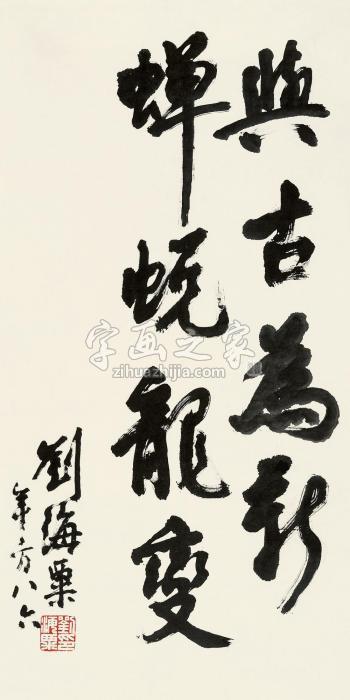 與古為新
蟬蛻龍變
劉海粟
年方八六
字画之家
zihuazhijia.com